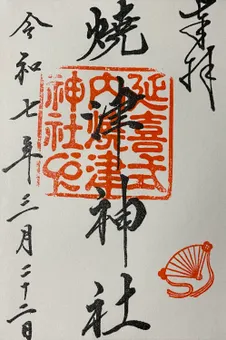 奉拝
燒津神社
延喜式
内燒津
神社
令和七年三月二十二日